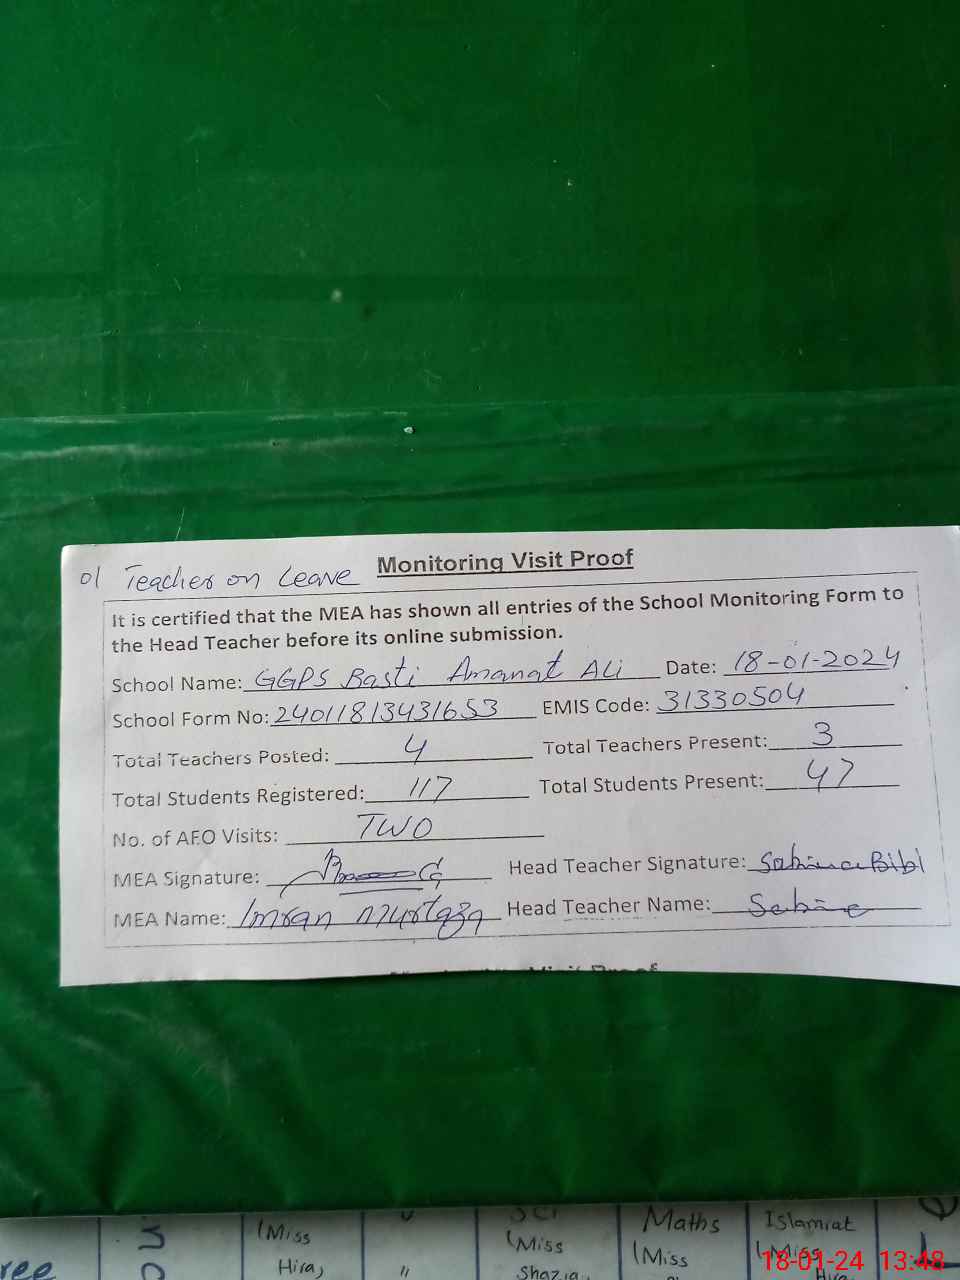 01 Teacher on Leave Monitoring Visit Proof
It is certified that the MEA has shown all entries of the School Monitoring Form to
the Head Teacher before its online submission.
School Name: GGPS Basti Amanat Ali Date: 18-01-2024
School Form No: 24011813431653 EMIS Code: 31330504
Total Teachers Posted: 4 Total Teachers Present: 3
Total Students Registered: 117 Total Students Present: 47
No. of AEO Visits: TWO
MEA Signature: Head Teacher Signature: Sabina Bibi
MEA Name: Imran Murtaza Head Teacher Name: Sabina
Visit Proof
Maths Islamiat
(Miss (Miss (Miss (Miss
Hira) " Shazia
18-01-24 13:48